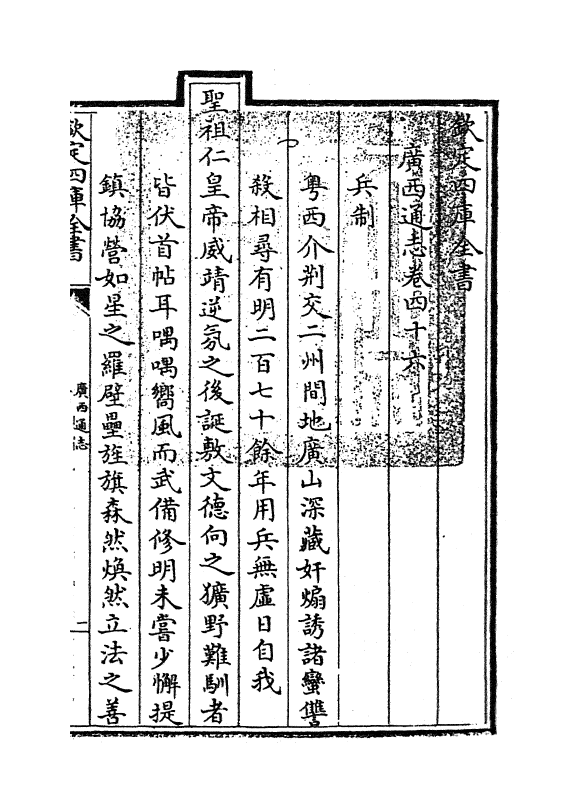 欽定四庫全書
廣西通志卷四十六
兵制
粤西介荆交二州間地廣山深藏奸煽誘諸蠻讐
殺相尋有明二百七十餘年用兵無虚日自我
聖祖仁皇帝威靖逆氛之後誕敷文德向之獷野難馴者
皆伏首帖耳喁喁嚮風而武備修明未嘗少懈提
鎮協營如星之羅壁壘旌旗森然煥然立法之善
欽定四庫全書
廣西通志